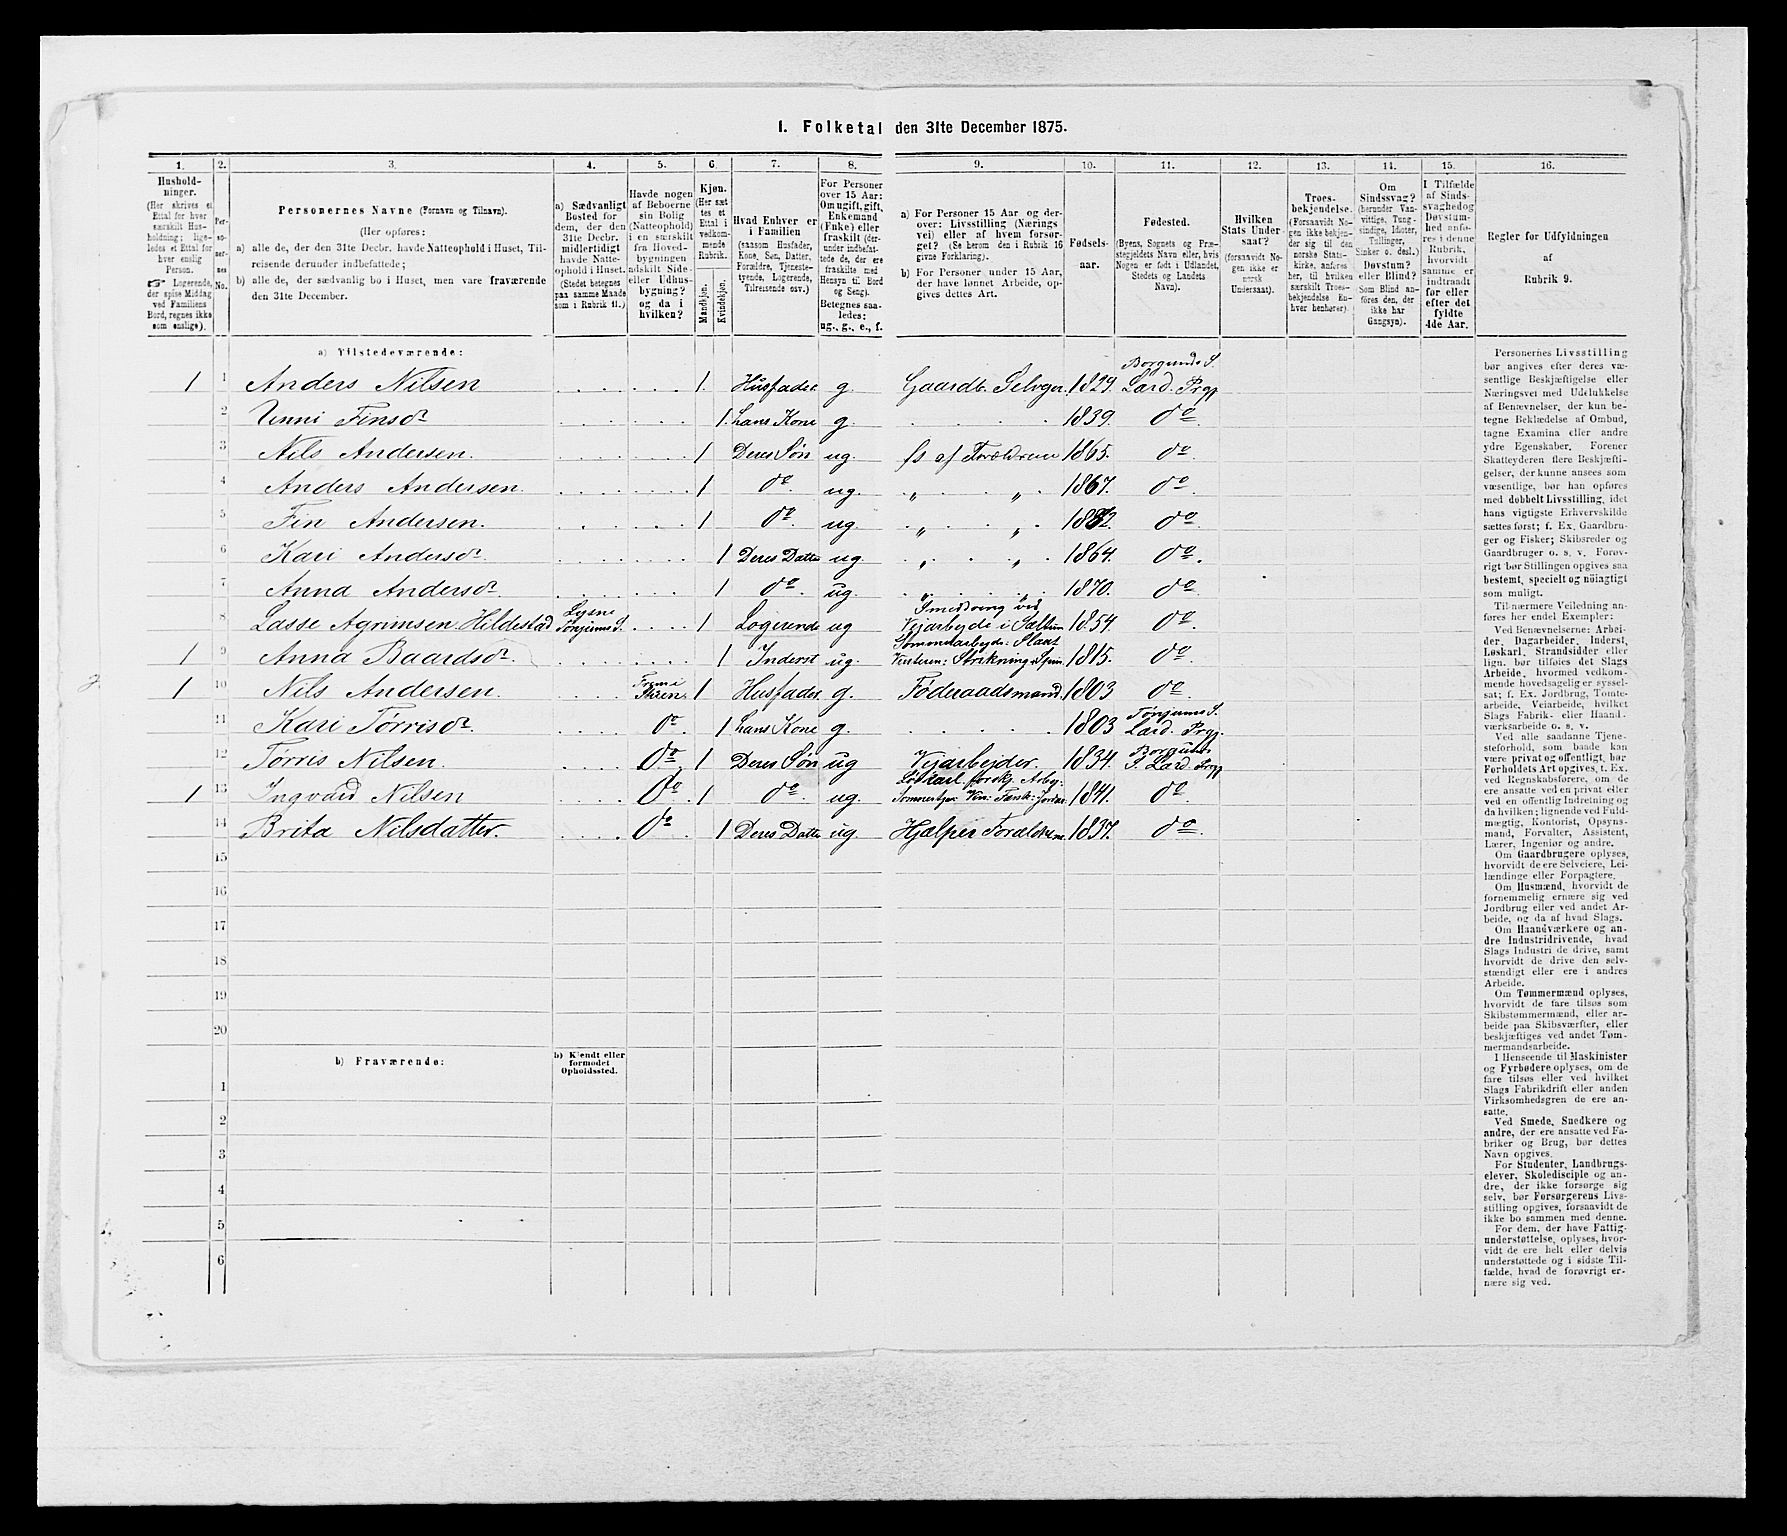 I. Folketal den 31te December 1875.
1. 2. 3. 4. 5. 6. 7. 8. 9. 10. 11. 12. 13. 14. 15. 16.
Hushold-
ninger.
(Her skrives et
Ettal for hver
særskilt Hus-
holdning; lige-
ledes et Ettal for
hver enslig
Person.
☞ Logerende,
der spise Middag
ved Familiens
Bord, regnes ikke
som enslige).
Per-
so-
ner-
nes
No.
Personernes Navne (Fornavn og Tilnavn).
(Her opføres:
a) alle de, der den 31te Decbr. havde Natteophold i Huset, Til-
reisende derunder indbefattede;
b) alle de, der sædvanlig bo i Huset, men vare fraværende
den 31te December.
a) Sædvanligt
Bosted for
dem, der den
31te Decbr.
midlertidigt
havde Natte-
ophold i Huset.
(Stedet betegnes
paa samme Maade
som i Rubrik 11.)
Havde nogen
af Beboerne
sin Bolig
(Natteophold)
i en særskilt
fra Hoved-
bygningen
adskilt Side-
eller Udhus-
bygning?
og da i
hvilken?
Kjøn.
(Her sæt-
tes et
Ettal i
vedkom-
mende
Rubrik.
Mandkjøn.
Kvindekjøn.
Hvad Enhver er
i Familien
(saasom Husfader,
Kone, Søn, Datter,
Forældre, Tjeneste-
tyende, Logerende,
Tilreisende osv.)
For Personer
over 15 Aar:
Om ugift, gift,
Enkemand
(Enke) eller
fraskilt (der-
under indbefat-
tede de, der ere
fraskilte med
Hensyn til Bord
og Seng).
Betegnes saa-
ledes:
ug., g., e., f.
a) For Personer 15 Aar og der-
over: Livsstilling (Nærings-
vei) eller af hvem forsør-
get? (Se herom den i Rubrik 16
givne Forklaring).
b) For Personer under 15 Aar,
der have lønnet Arbeide, op-
gives dettes Art.
Fødsels-
aar.
Fødested.
(Byens, Sognets og Præ-
stegjeldets Navn eller, hvis
Nogen er født i Udlandet,
Stedets og Landets
Navn).
Hvilken
Stats Under-
saat?
(forsaavidt No-
gen ikke er
norsk
Undersaat).
Troes-
bekjendelse.
(Forsaavidt No-
gen ikke bekjen-
der sig til den
norske Stats-
kirke, anføres
her, til hvilken
særskilt Troes-
bekjendelse En-
hver henhører).
Om
Sindssvag?
(herunder Van-
vittige, Tung-
sindige, Idioter,
Tullinger,
Sinker o. desl.)
Døvstum?
eller Blind?
Som Blind an-
føres den, der
ikke har
Gangsyn).
I Tilfælde
af Sinds-
svaghed og
Døvstum-
hed anfø-
res i denne
Rubrik,
hvorvidt
samme er
indtraadt
før eller
efter det
fyldte
4de Aar.
Regler for Udfyldningen
af
Rubrik 9.
a) Tilstedeværende:
1 1 Anders Nilsen 1 Husfader g. Gaardb. Selveier 1829. Borgunds S. Lærd. Prgj
2 Unni Finsdr 1. hans Kone g. 1839. do
3 Nils Andersen. 1 Deres Søn ug. fs af Forældrene 1865. do
4 Anders Andersen. 1 do. ug. „ „ 1867. do
5 Fin Andersen. 1 do. ug. „ „ do
6 Kari Andersdr. 1 Deres Datter ug. „ „ 1864. do.
7 Anna Andersdr. 1 do. ug. „ „ 1870. do
8 Lasse Agrimsen Hildestad Lysne Tønjums S. 1 Logerende ug ved Veiarbeide i 1854. do.
1 9 Anna Baardsdr. 1 Inderst ug. Vinteren: Strikning 1815. do
1 10 Nils Andersen. 1 Husfader g. Føderaadsmand. 1803 do
11 Kari Torrisdr. do 1 hans Kone g. 1803 Tønjums S. Lærd. Prgj.
12 Tørris Nilsen. do. 1 Deres Søn ug Veiarbejder. 1834. Borgunds S. Lærd. Prgj
1 13 Ingvald Nilsen do 1 do. ug. 1841. do
14 Brita Nilsdatter. do 1 Deres Datter ug. Hjælper Forældrene. 1837. do.
15
16
17
18
19
20
b) Fraværende:
b) Kjendt eller
formodet
Opholdssted.
1
2
3
4
5
6
Personernes Livsstilling
bør angives efter deres væ-
sentlige Beskjæftigelse eller
Næringsvei med Udelukkelse
af Benævnelser, der kun be-
tegne Beklædelse af Ombud,
tagne Examina eller andre
ydre Egenskaber. Forener
Skatteyderen flere Beskjæfti-
gelser, der kunne ansees som
væsentlige, bør han opføres
med dobbelt Livsstilling, idet
hans vigtigste Erhvervskilde
sættes først; f. Ex. Gaardbru-
ger og Fisker; Skibsreder og
Gaardbruger o. s. v. Forøv-
rigt bør Stillingen opgives saa
bestemt, specielt og nøiagtigt
som muligt.
Til nærmere Veiledning an-
føres her endel Exempler:
Ved Benævnelserne: Arbei-
der, Dagarbeider, Inderst,
Løskarl, Strandsidder eller
lign. bør tilføies det Slags
Arbeide, hvormed vedkom-
mende hovedsagelig er syssel-
sat; f. Ex. Jordbrug, Tomte-
arbeide, Veiarbeide, hvilket
Slags Fabrik- eller Haand-
værksarbeide o. s. v.
Ved alle saadanne Tjene-
steforhold, som baade kan
være privat og offentligt, bør
Forholdets Art opgives, t. Ex.
ved Regnskabsførere, om de
ere ansatte ved en privat eller
ved en offentlig Indretning og
da hvilken; lignende ved Fuld-
mægtig, Kontorist, Opsyns-
mand, Forvalter, Assistent,
Lærer, Ingeniør og andre.
Om Gaardbrugere oplyses,
hvorvidt de ere Selveiere, Lei-
lændinge eller Forpagtere.
Om Husmænd, hvorvidt de
fornemmelig ernære sig ved
Jordbrug eller ved andet Ar-
beide, og da af hvad Slags.
Om Haandværkere og an-
dre Industridrivende, hvad
Slags Industri de drive, samt
hvorvidt de drive den selv-
stændigt eller ere i andres
Arbeide.
Om Tømmermænd oplyses,
hvorvidt de fare tilsøs som
Skibstømmermænd, eller ar-
beide paa Skibsværfter, eller
beskjæftiges ved andet Tøm-
mermandsarbeide.
I Henseende til Maskinister
og Fyrbødere oplyses, om de
fare tilsøs eller ved hvilket
Slags Fabrikdrift eller anden
Virksomhedsgren de ere an-
satte.
Ved Smede, Snedkere og
andre, der ere ansatte ved Fa-
briker og Brug, bør dettes
Navn opgives.
For Studenter, Landbrugs-
elever, Skoledisciple og an-
dre, der ikke forsørge sig
selv, bør Forsørgerens Livs-
stilling opgives, forsaavidt de
ikke bo sammen med denne.
For dem, der have Fattig-
understøttelse, oplyses, hvor-
vidt de ere helt eller delvis
understøttede og i sidste Til-
fælde, hvad de forøvrigt er-
nære sig ved.